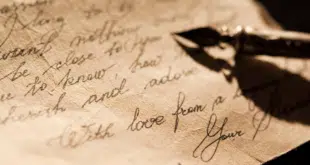 want nothing
be close to you
to know, how
cherish and adore
With love from a
Your